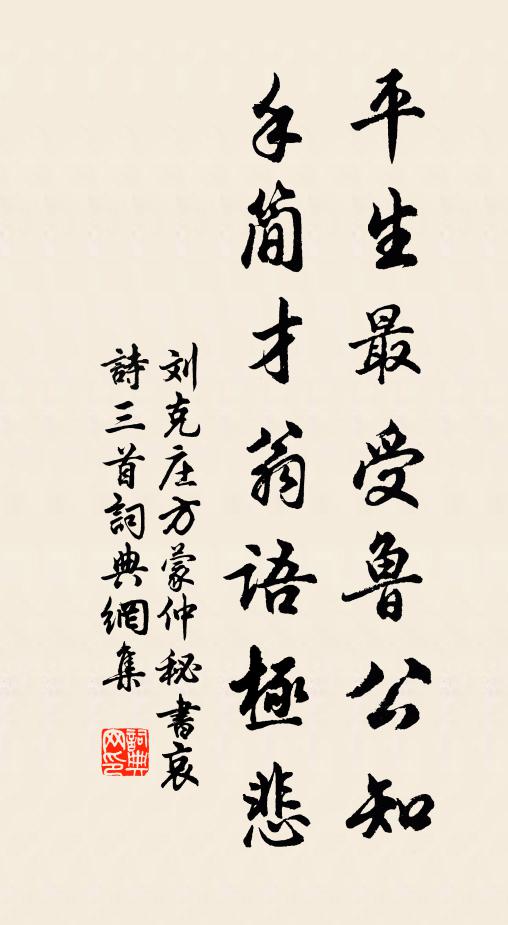 平生最受魯公知
手簡才翁語極悲
刘克庄方蒙仲秘書哀
詩三首詞典網集
詞典
网印